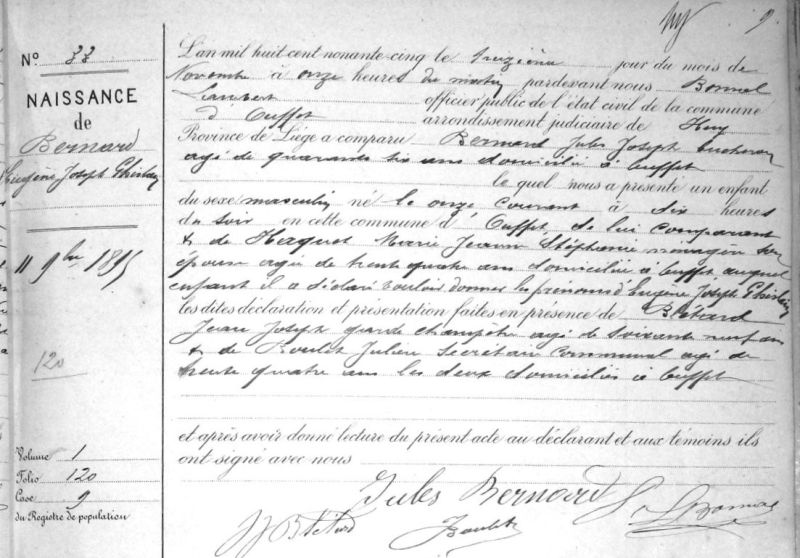 9
N° 33
NAISSANCE
de
Bernard
Eugène Joseph Ghislain
11 9bre 1895
120
Volume 1
Folio 120
Case 9
du Registre de population
L'an mil huit cent nonante-cinq le treizième jour du mois de
Novembre à onze heures du matin pardevant nous Bonnel
Lambert officier public de l'état civil de la commune
d'Ouffet arrondissement judiciaire de Huy
Province de Liége a comparu Bernard Jules Joseph
agé de quarante six ans domicilié à Ouffet
le quel nous a présenté un enfant
du sexe masculin né le onze courant à dix heures
du soir en cette commune d'Ouffet, de lui comparant
& de Haquet Marie Jeanne Stéphanie ménagère son
épouse agée de trente quatre ans domiciliée à Ouffet auquel
enfant il a déclaré vouloir donner les prénoms d'Eugène Joseph Ghislain
les dites déclaration et présentation faites en présence de Blétard
Jean Joseph garde champêtre agé de soixante neuf ans
& de Boulet Julien Secrétaire communal agé de
trente quatre ans les deux domiciliés à Ouffet
et après avoir donné lecture du présent acte au déclarant et aux témoins ils
ont signé avec nous
Jules Bernard L Bonnel
JJ Blétard Boulet